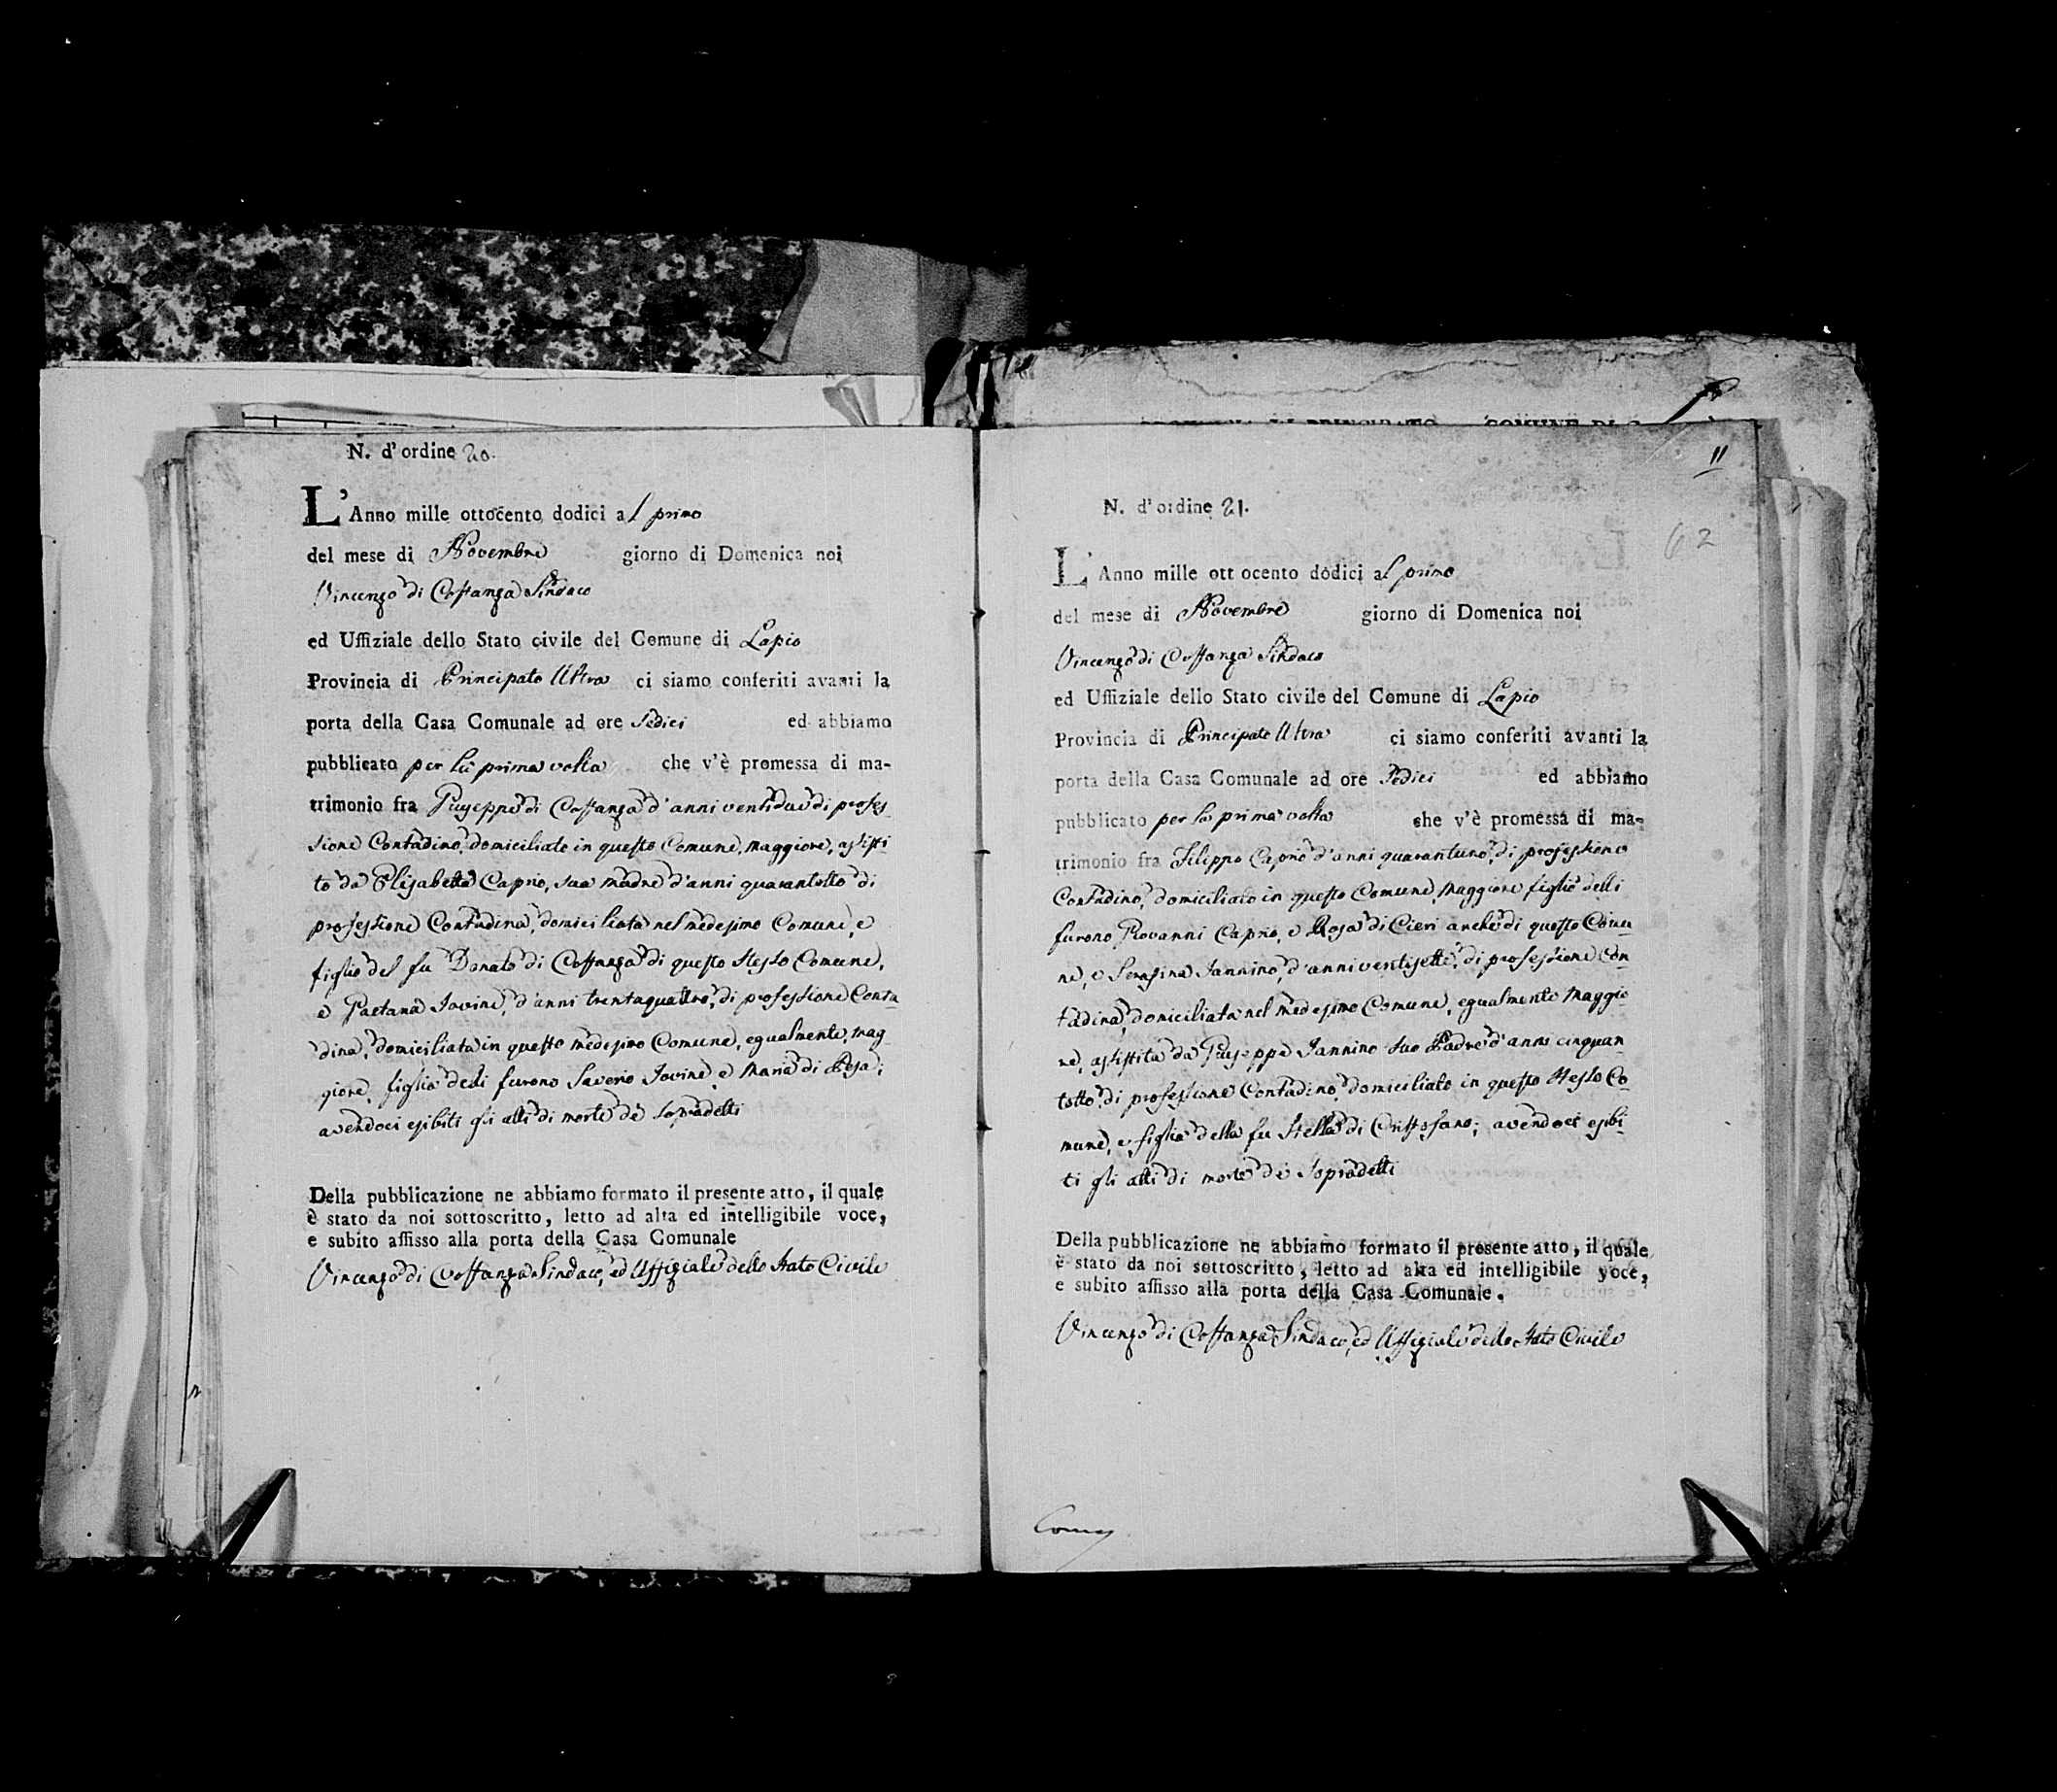 N. d'ordine 20.
L'Anno mille ottocento dodici al primo
del mese di Novembre giorno di Domenica noi
Vincenzo di Costanza Sindaco
ed Uffiziale dello Stato civile del Comune di Lapio
Provincia di Principato Ultra ci siamo conferiti avanti la
porta della Casa Comunale ad ore Sedici ed abbiamo
pubblicato per la prima volta che v'è promessa di ma-
trimonio fra Giuseppe di Costanza d'anni ventidue di profes
sione Contadino, domiciliato in questo Comune, maggiore, assisti
to da Elisabetta Caprio, sua madre d'anni quarantotto di
professione Contadina, domiciliata nel medesimo Comune, e
figlio del fu Donato di Costanza di questo stesso Comune,
e Gaetana Iovine, d'anni trentaquattro, di professione Conta
dina, domiciliata in questo medesimo Comune, egualmente, mag
giore, figlia delli furono Saverio Iovine, e Maria di Rosa;
avendoci esibiti gli atti di morte de' sopradetti
Della pubblicazione ne abbiamo formato il presente atto, il quale
è stato da noi sottoscritto, letto ad alta ed intelligibile voce,
e subito affisso alla porta della Casa Comunale
Vincenzo di Costanza Sindaco, ed Uffiziale dello Stato Civile
PRINCIPATO COMUNE DI
11
62
N. d'ordine 21.
L'Anno mille ott ocento dodici al primo
del mese di Novembre giorno di Domenica noi
Vincenzo di Costanza Sindaco
ed Uffiziale dello Stato civile del Comune di Lapio
Provincia di Principato Ultra ci siamo conferiti avanti la
porta della Casa Comunale ad ore Sedici ed abbiamo
pubblicato per la prima volta che v'è promessa di ma-
trimonio fra Filippo Caprio d'anni quarantuno, di professione
Contadino, domiciliato in questo Comune, maggiore figlio delli
furono Giovanni Caprio, e Rosa di Cieri anche di questo Comu
ne, e Serafina Iannino, d'anni ventisette, di professione Con
tadina, domiciliata nel medesimo Comune, egualmente maggio
re, assistita da Giuseppe Iannino suo Padre d'anni cinquan
totto, di professione Contadino, domiciliato in questo stesso Co
mune, e figlia della fu Stella di Cristofano; avendoci esibi
ti gli atti di morte de' sopradetti
Della pubblicazione ne abbiamo formato il presente atto, il quale
è stato da noi sottoscritto, letto ad alta ed intelligibile voce,
e subito affisso alla porta della Casa Comunale.
Vincenzo di Costanza Sindaco, ed Uffiziale dello Stato Civile